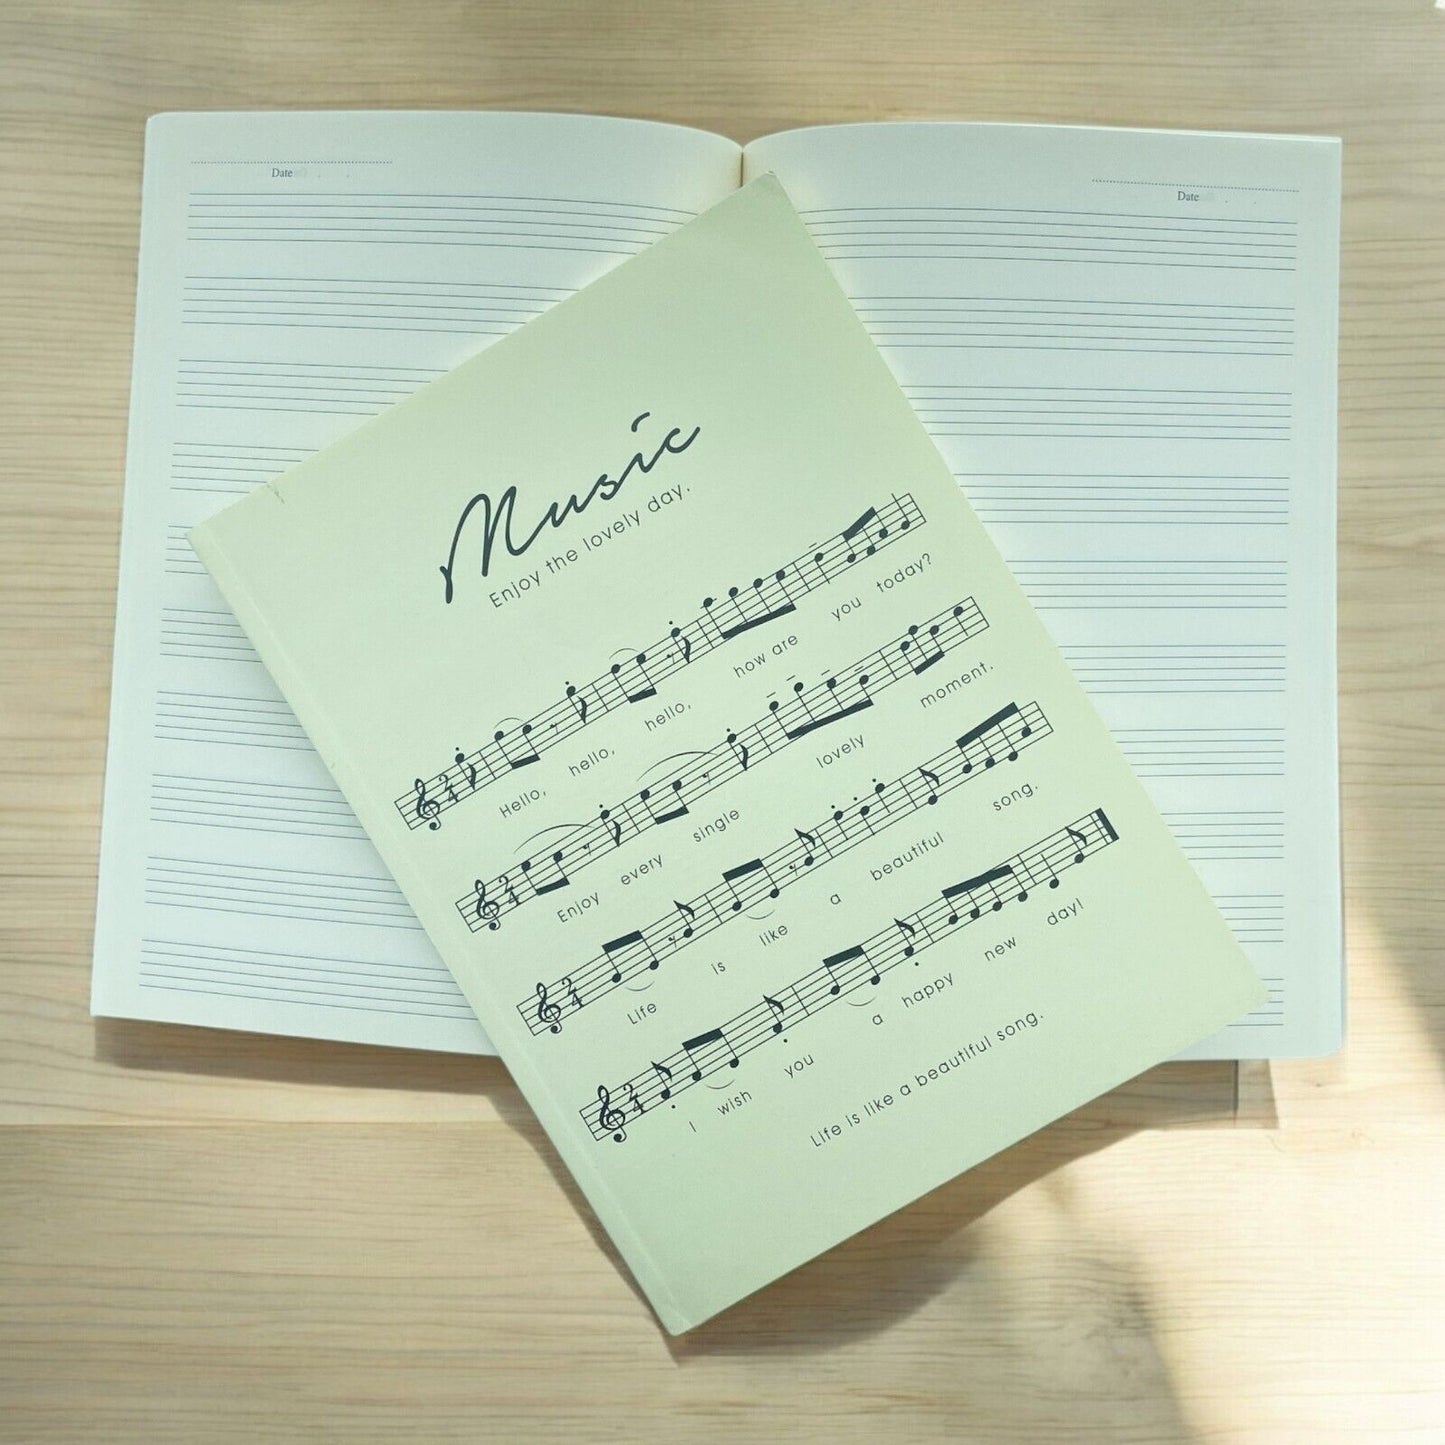 Date
Date
Music
Enjoy the lovely day.
Hello, hello, hello, how are you today?
Enjoy every single lovely moment.
Life is like a beautiful song.
I wish you a happy new day!
Life is like a beautiful song.